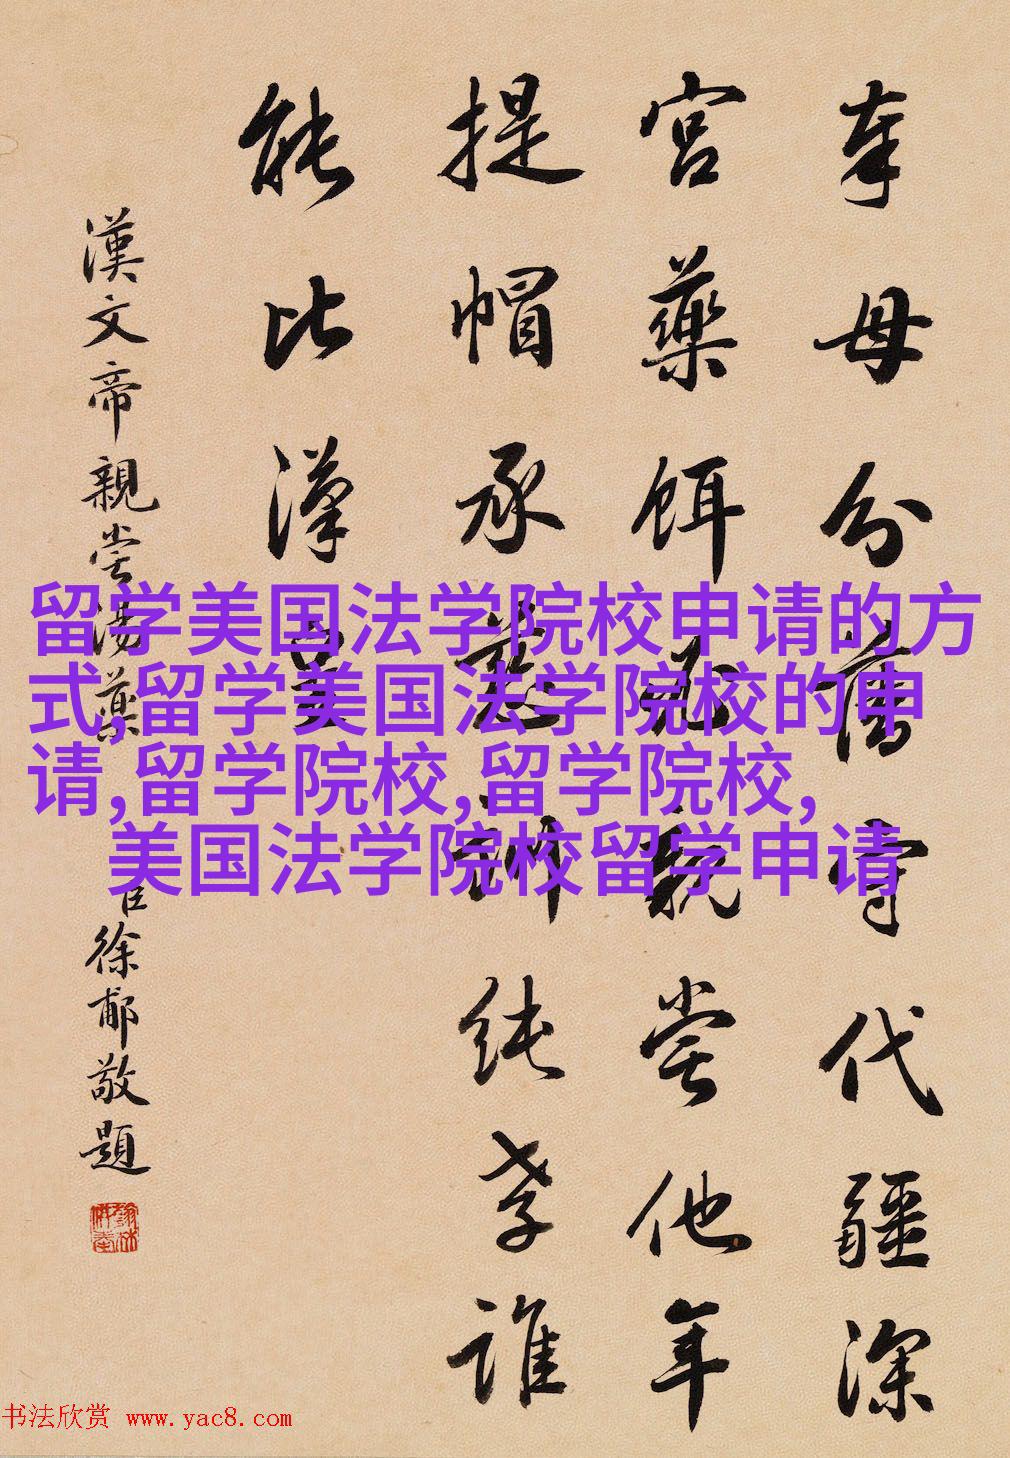 奉母分藩守代疆深
宮藥餌必親嘗他年
提帽承慈訓純孝誰
能比漢皇
漢文帝親嘗湯藥
臣徐郙敬題
留学美国法学院校申请的方
式,留学美国法学院校的申
请,留学院校,留学院校,
美国法学院校留学申请
书法欣赏 www.yac8.com